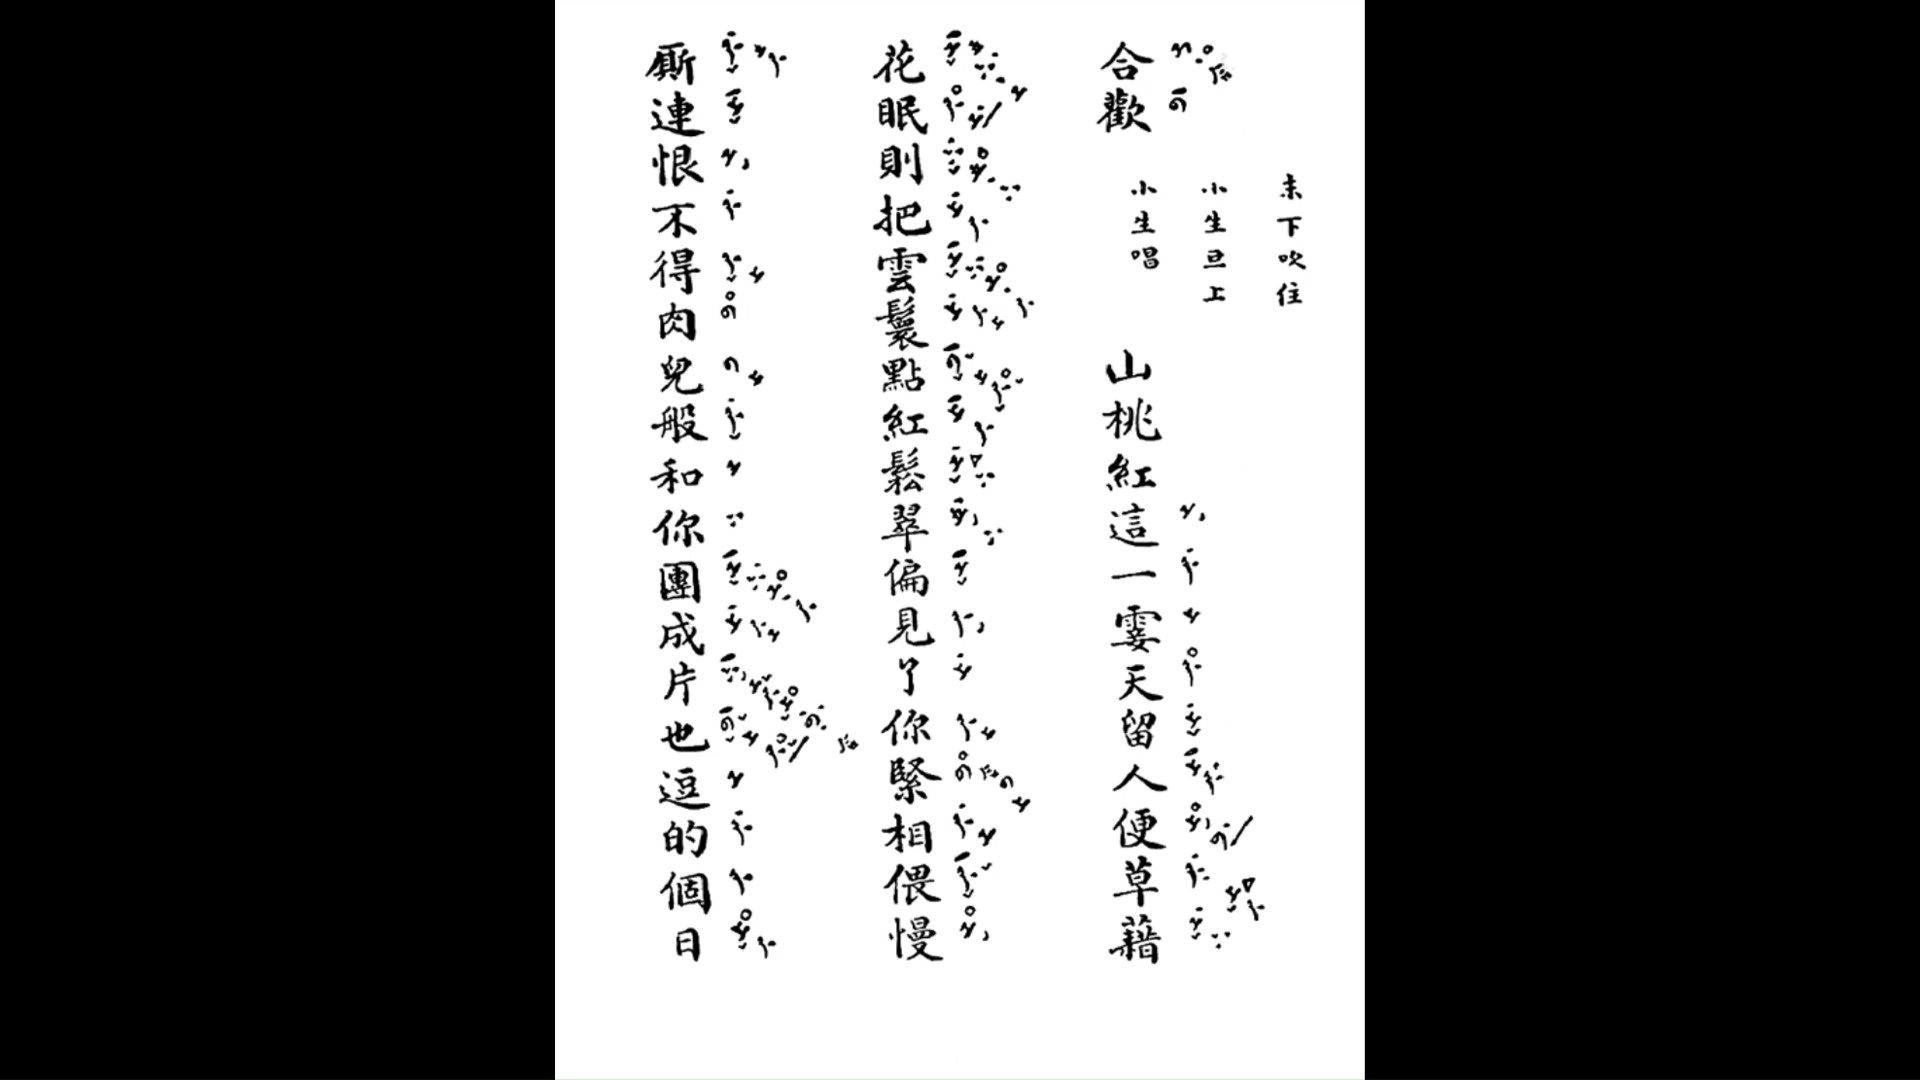 合歡
末下吹住
小生旦上
小生唱
山桃紅這一霎天留人便草藉
花眠則把雲鬟點紅鬆翠偏見了你緊相偎慢
厮連恨不得肉兒般和你團成片也逗的個日